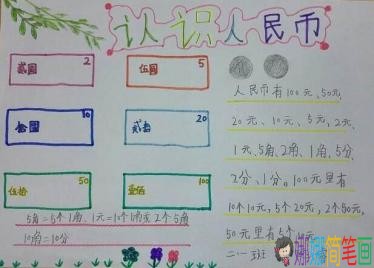 认识人民币
贰圆 2
伍圆 5
拾圆 10
贰拾 20
伍拾 50
壹佰 100
5角=5个1角、1元=10个1角或2个5角
10角=10分
人民币有100元、50元、
20元、10元、5元、2元、
1元、5角、2角、1角、5分、
2分、1分。100元里有
10个10元，5个20元，2个50元，
50元里有5个10元
二·一班
娜娜简笔画